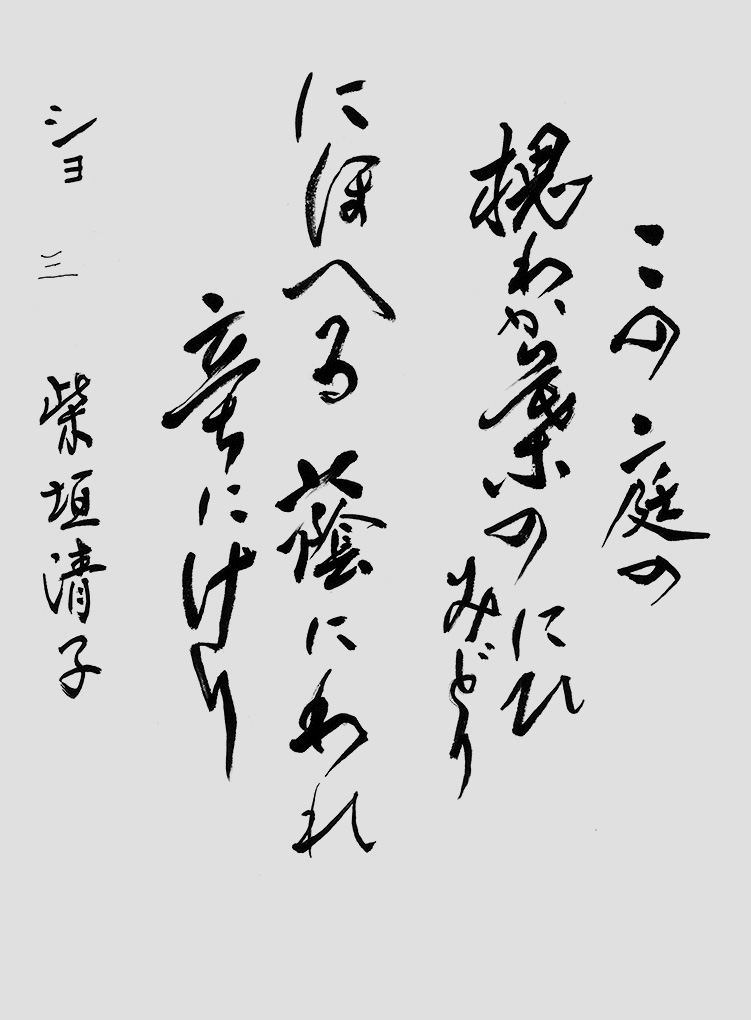 この庭の
槐わか葉のにひ
みどり
にほへる蔭にわれ
立ちにけり
ショ 三 柴垣清子